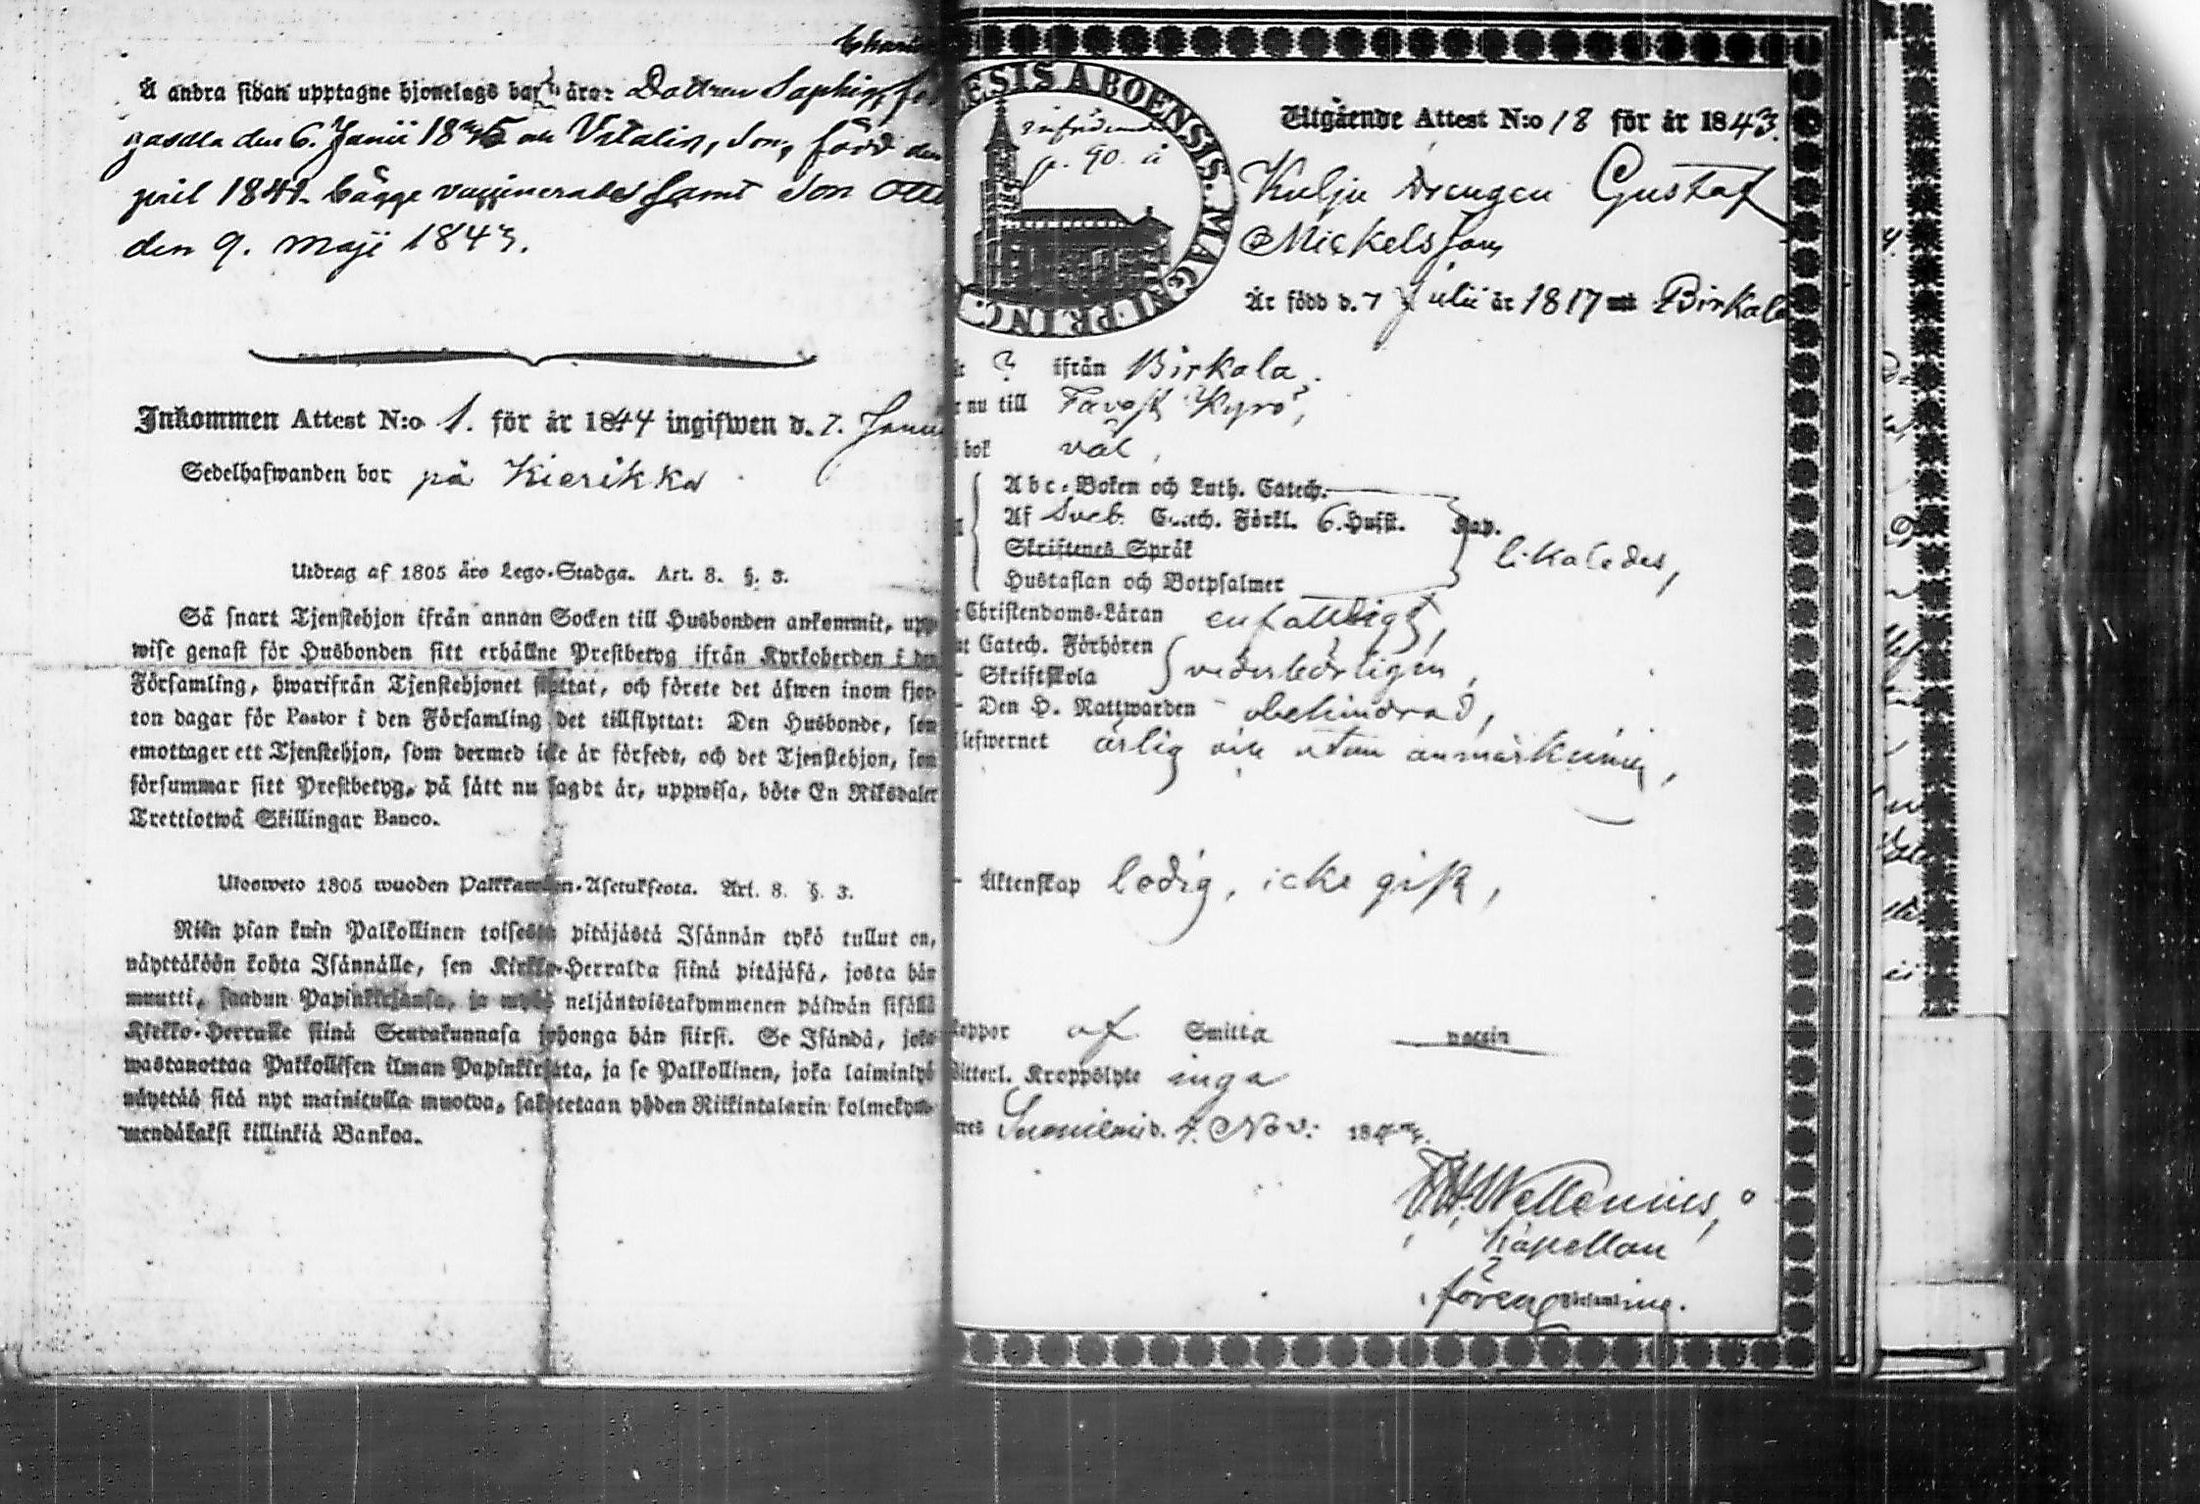 Å andra sidan upptagne hjonelags barn äro: Dottren Sophia, fö
den 6. Junii 18 Vitalin, Son, född den
april 1841. bägge vaccinerade samt Son Otto
den 9. Maji 1843.
Inkommen Attest N:o 1. för år 1844 ingifwen d. 7. Janu
Sedelhafwanden bor på Kierikka
Utdrag af 1805 års Lego-Stadga. Art. 8. §. 3.
Så snart Tjenstehjon ifrån annan Socken till Husbonden ankommit, upp-
wise genast för Husbonden sitt erhållne Prestbetyg ifrån Kyrkoherden i den
Församling, hwarifrån Tjenstehjonet flyttat, och förete det äfwen inom fjor-
ton dagar för Pastor i den Församling det tillflyttat: Den Husbonde, som
emottager ett Tjenstehjon, som dermed icke är försedt, och det Tjenstehjon, som
försummar sitt Prestbetyg, på sätt nu sagdt är, uppwisa, böte En Riksdaler
Trettiotwå Skillingar Banco.
Ulosweto 1805 wuoden Palkkawäen-Asetuksesta. Art. 8. §. 3.
Niin pian kuin Palkollinen toisesta pitäjästä Isännän tykö tullut on,
näyttäköön kohta Isännälle, sen Kirkko-Herralda siinä pitäjäsä, josta hän
muutti, saadun Papinkirjansa, ja myös neljäntoistakymmenen päiwän sisällä
Kirkko-Herralle siinä Seurakunnasa johonga hän siirsi. Se Isändä, joka
wastanottaa Palkollisen ilman Papinkirjata, ja se Palkollinen, joka laiminlyö
näyttää sitä nyt mainitulla muotoa, sakotetaan yhden Riikintalarin kolmekym-
mendäkaksi killinkiä Bankoa.
ESIS ABOENSIS. MAGNI PRINC.
p. 90. å
Utgående Attest N:o 18 för år 1843.
Kulju Drengen Gustaf
Mickelsson
Är född d. 7 Julii år 1817 Birkala
? ifrån Birkala.
nu till Tavast Kyro,
bok väl,
Abc-Boken och Luth. Catech.
Af Sveb. Catech. Förkl. 6. Hufst. Kap.
Skriftenes Språk
likaledes,
Hustaflan och Botpsalmer
Christendoms-Läran enfaldigt,
Catech. Förhören
- Skriftskola vederbörligen,
- Den H. Nattwarden obehindrad,
lefwernet ärlig och utan anmärkning,
- Äktenskap ledig, icke gift,
koppor af Smitta vaccin
Witterl. Kroppslyte inga
Suoniemi d. 4. Nov: 1843.
Wellenius,
kapellan
Församling.